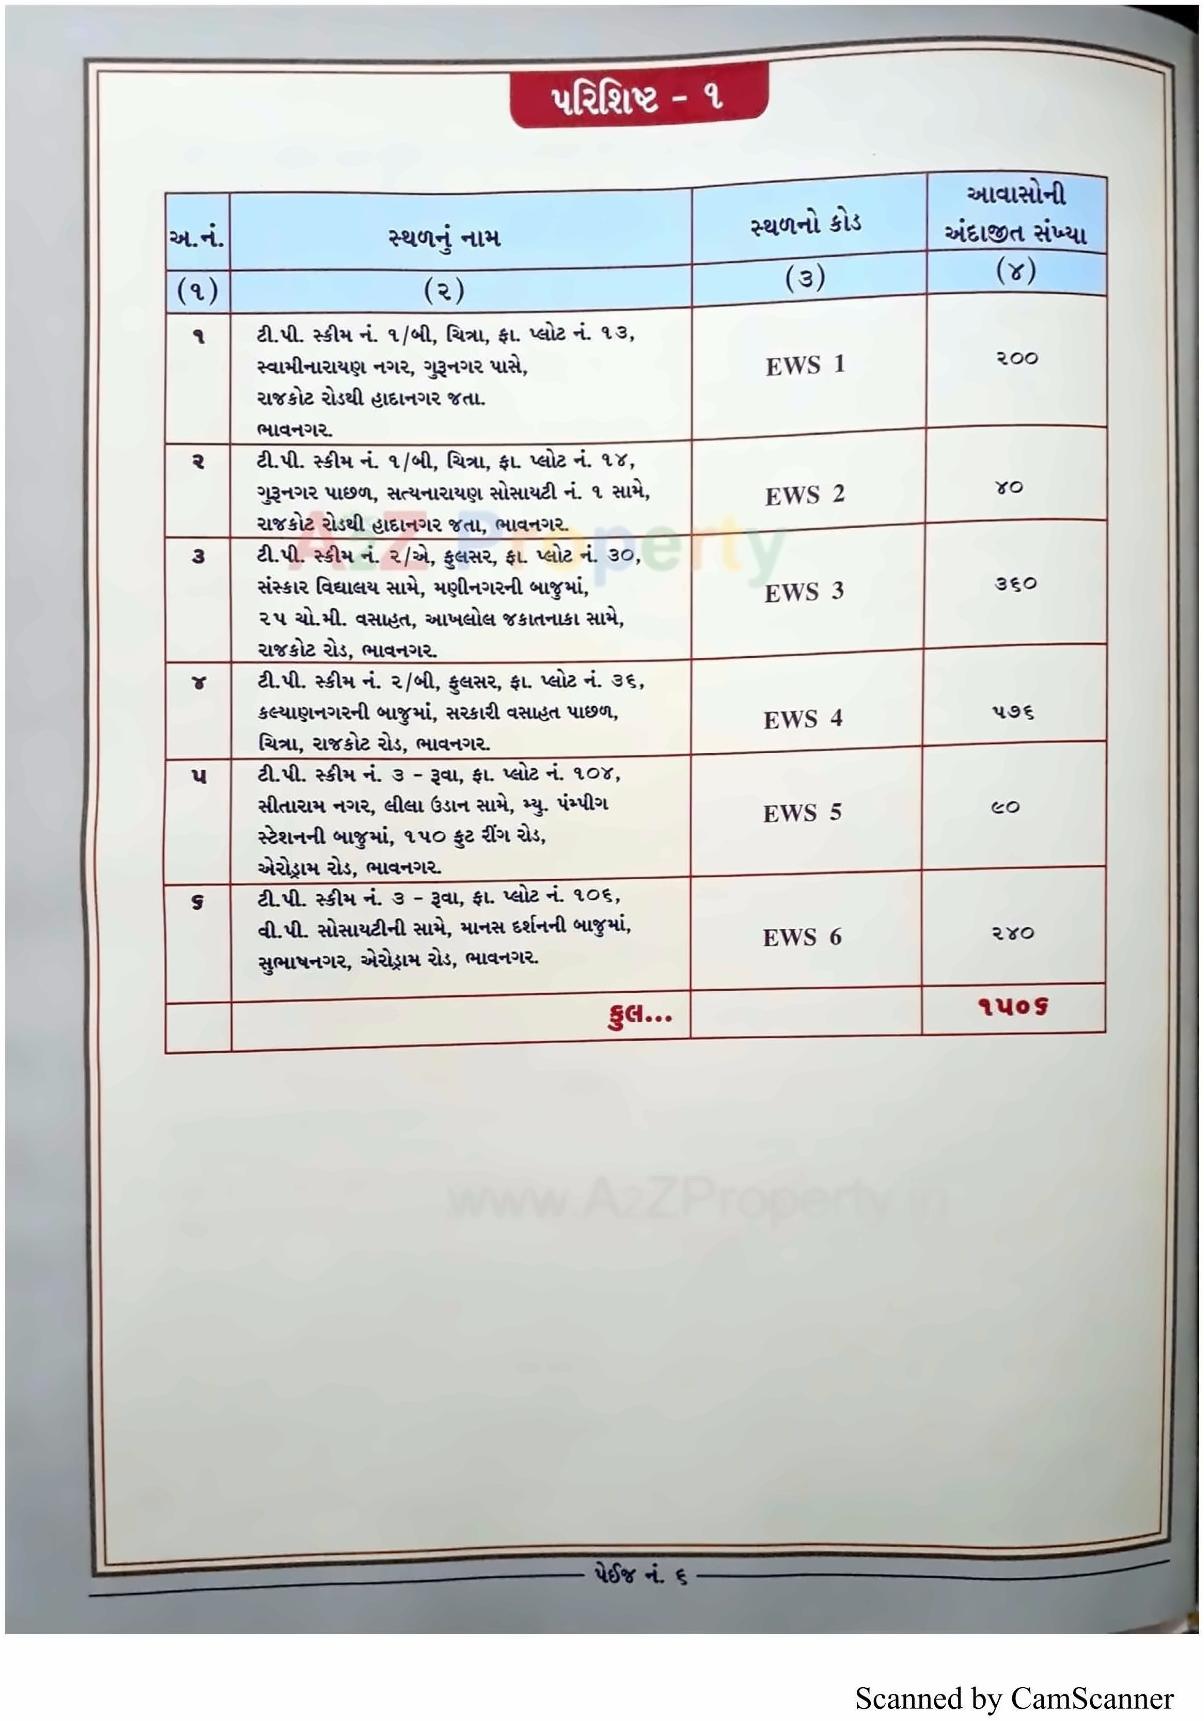 પરિશિષ્ટ - ૧
અ.નં.
સ્થળનું નામ
સ્થળનો કોડ
આવાસોની
અંદાજીત સંખ્યા
(૧)
(૨)
(૩)
(૪)
૧
ટી.પી. સ્કીમ નં. ૧/બી, ચિત્રા, ફા. પ્લોટ નં. ૧૩,
સ્વામીનારાયણ નગર, ગુરૂનગર પાસે,
રાજકોટ રોડથી હાદાનગર જતા.
ભાવનગર.
EWS 1
૨૦૦
૨
ટી.પી. સ્કીમ નં. ૧/બી, ચિત્રા, ફા. પ્લોટ નં. ૧૪,
ગુરૂનગર પાછળ, સત્યનારાયણ સોસાયટી નં. ૧ સામે,
રાજકોટ રોડથી હાદાનગર જતા, ભાવનગર.
EWS 2
૪૦
૩
ટી.પી. સ્કીમ નં. ૨/એ, ફુલસર, ફા. પ્લોટ નં. ૩૦,
સંસ્કાર વિદ્યાલય સામે, મણીનગરની બાજુમાં,
૨૫ ચો.મી. વસાહત, આખલોલ જકાતનાકા સામે,
રાજકોટ રોડ, ભાવનગર.
EWS 3
૩૬૦
૪
ટી.પી. સ્કીમ નં. ૨/બી, ફુલસર, ફા. પ્લોટ નં. ૩૬,
કલ્યાણનગરની બાજુમાં, સરકારી વસાહત પાછળ,
ચિત્રા, રાજકોટ રોડ, ભાવનગર.
EWS 4
૫૭૬
૫
ટી.પી. સ્કીમ નં. ૩ - રૂવા, ફા. પ્લોટ નં. ૧૦૪,
સીતારામ નગર, લીલા ઉડાન સામે, મ્યુ. પંમ્પીગ
સ્ટેશનની બાજુમાં, ૧૫૦ ફુટ રીંગ રોડ,
એરોડ્રામ રોડ, ભાવનગર.
EWS 5
૯૦
૬
ટી.પી. સ્કીમ નં. ૩ - રૂવા, ફા. પ્લોટ નં. ૧૦૬,
વી.પી. સોસાયટીની સામે, માનસ દર્શનની બાજુમાં,
સુભાષનગર, એરોડ્રામ રોડ, ભાવનગર.
EWS 6
૨૪૦
કુલ...
૧૫૦૬
A2Z Property
www.A2ZProperty.in
પેઈજ નં. ૬
Scanned by CamScanner